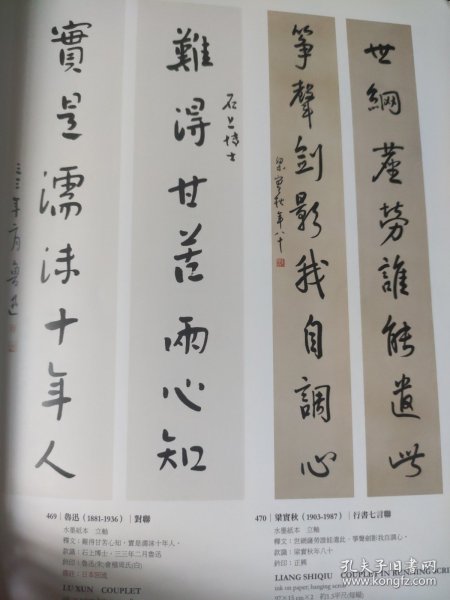 世網塵勞誰能遣此
箏聲劍影我自調心
梁實秋年八十
難得甘苦兩心知
石上博士
實是濡沫十年人
三三年二月魯迅
469 | 魯迅(1881-1936) | 對聯
水墨紙本 立軸
釋文:難得甘苦心知,實是濡沫十年人。
款識:石上博士,三三年二月魯迅
鈐印:魯迅(朱)會稽周氏(白)
備註:日本回流
LU XUN COUPLET
470 | 梁實秋(1903-1987) | 行書七言聯
水墨紙本 立軸
釋文:世網塵勞誰能遣此,箏聲劍影我自調心。
款識:梁實秋年八十
鈐印:
LIANG SHIQIU COUPLET IN RUNNING SCRI
ink on paper; hanging scroll
97×15 cm×2
孔夫子旧书网